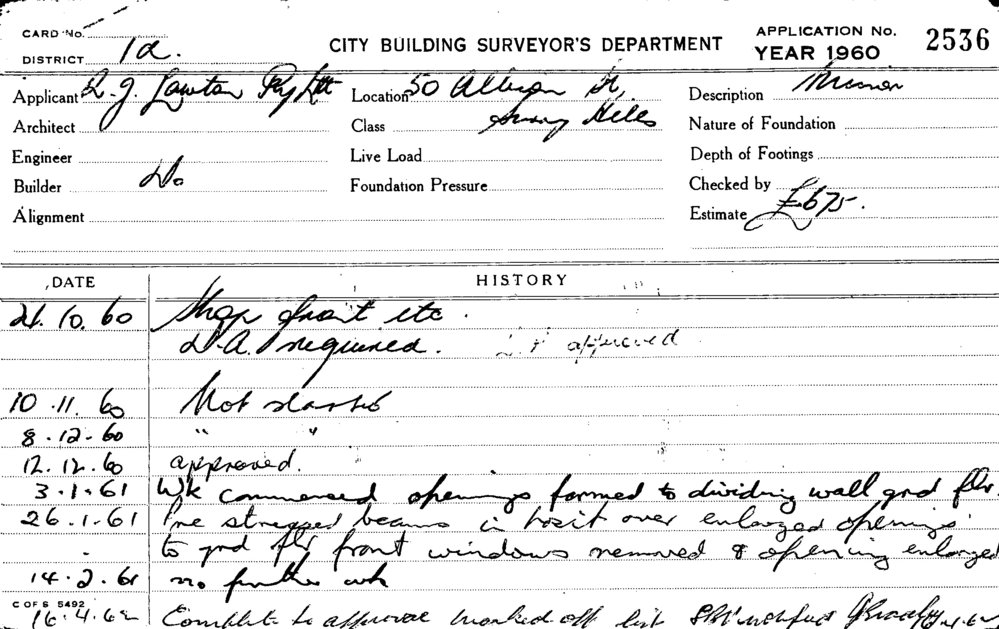 CARD No.
DISTRICT 1a.
CITY BUILDING SURVEYOR'S DEPARTMENT
APPLICATION No. 2536
YEAR 1960
Applicant R. J. Lawton Pty Ltd Location 50 Albion St, Description Minor
Architect Class Surry Hills Nature of Foundation
Engineer Live Load Depth of Footings
Builder Do Foundation Pressure Checked by
Alignment Estimate £675.
DATE HISTORY
21.10.60 Shop front etc.
D.A. required. D.A. approved
10.11.60 Not started
8.12.60 " "
12.12.60 approved.
3.1.61 Wk commenced openings formed to dividing wall grd flr.
26.1.61 Pre stressed beams in posit over enlarged openings
to grd flr front windows removed & opening enlarged
14.2.61 no further wk
C OF S 5492
16.4.62 Complete to approval marked off list